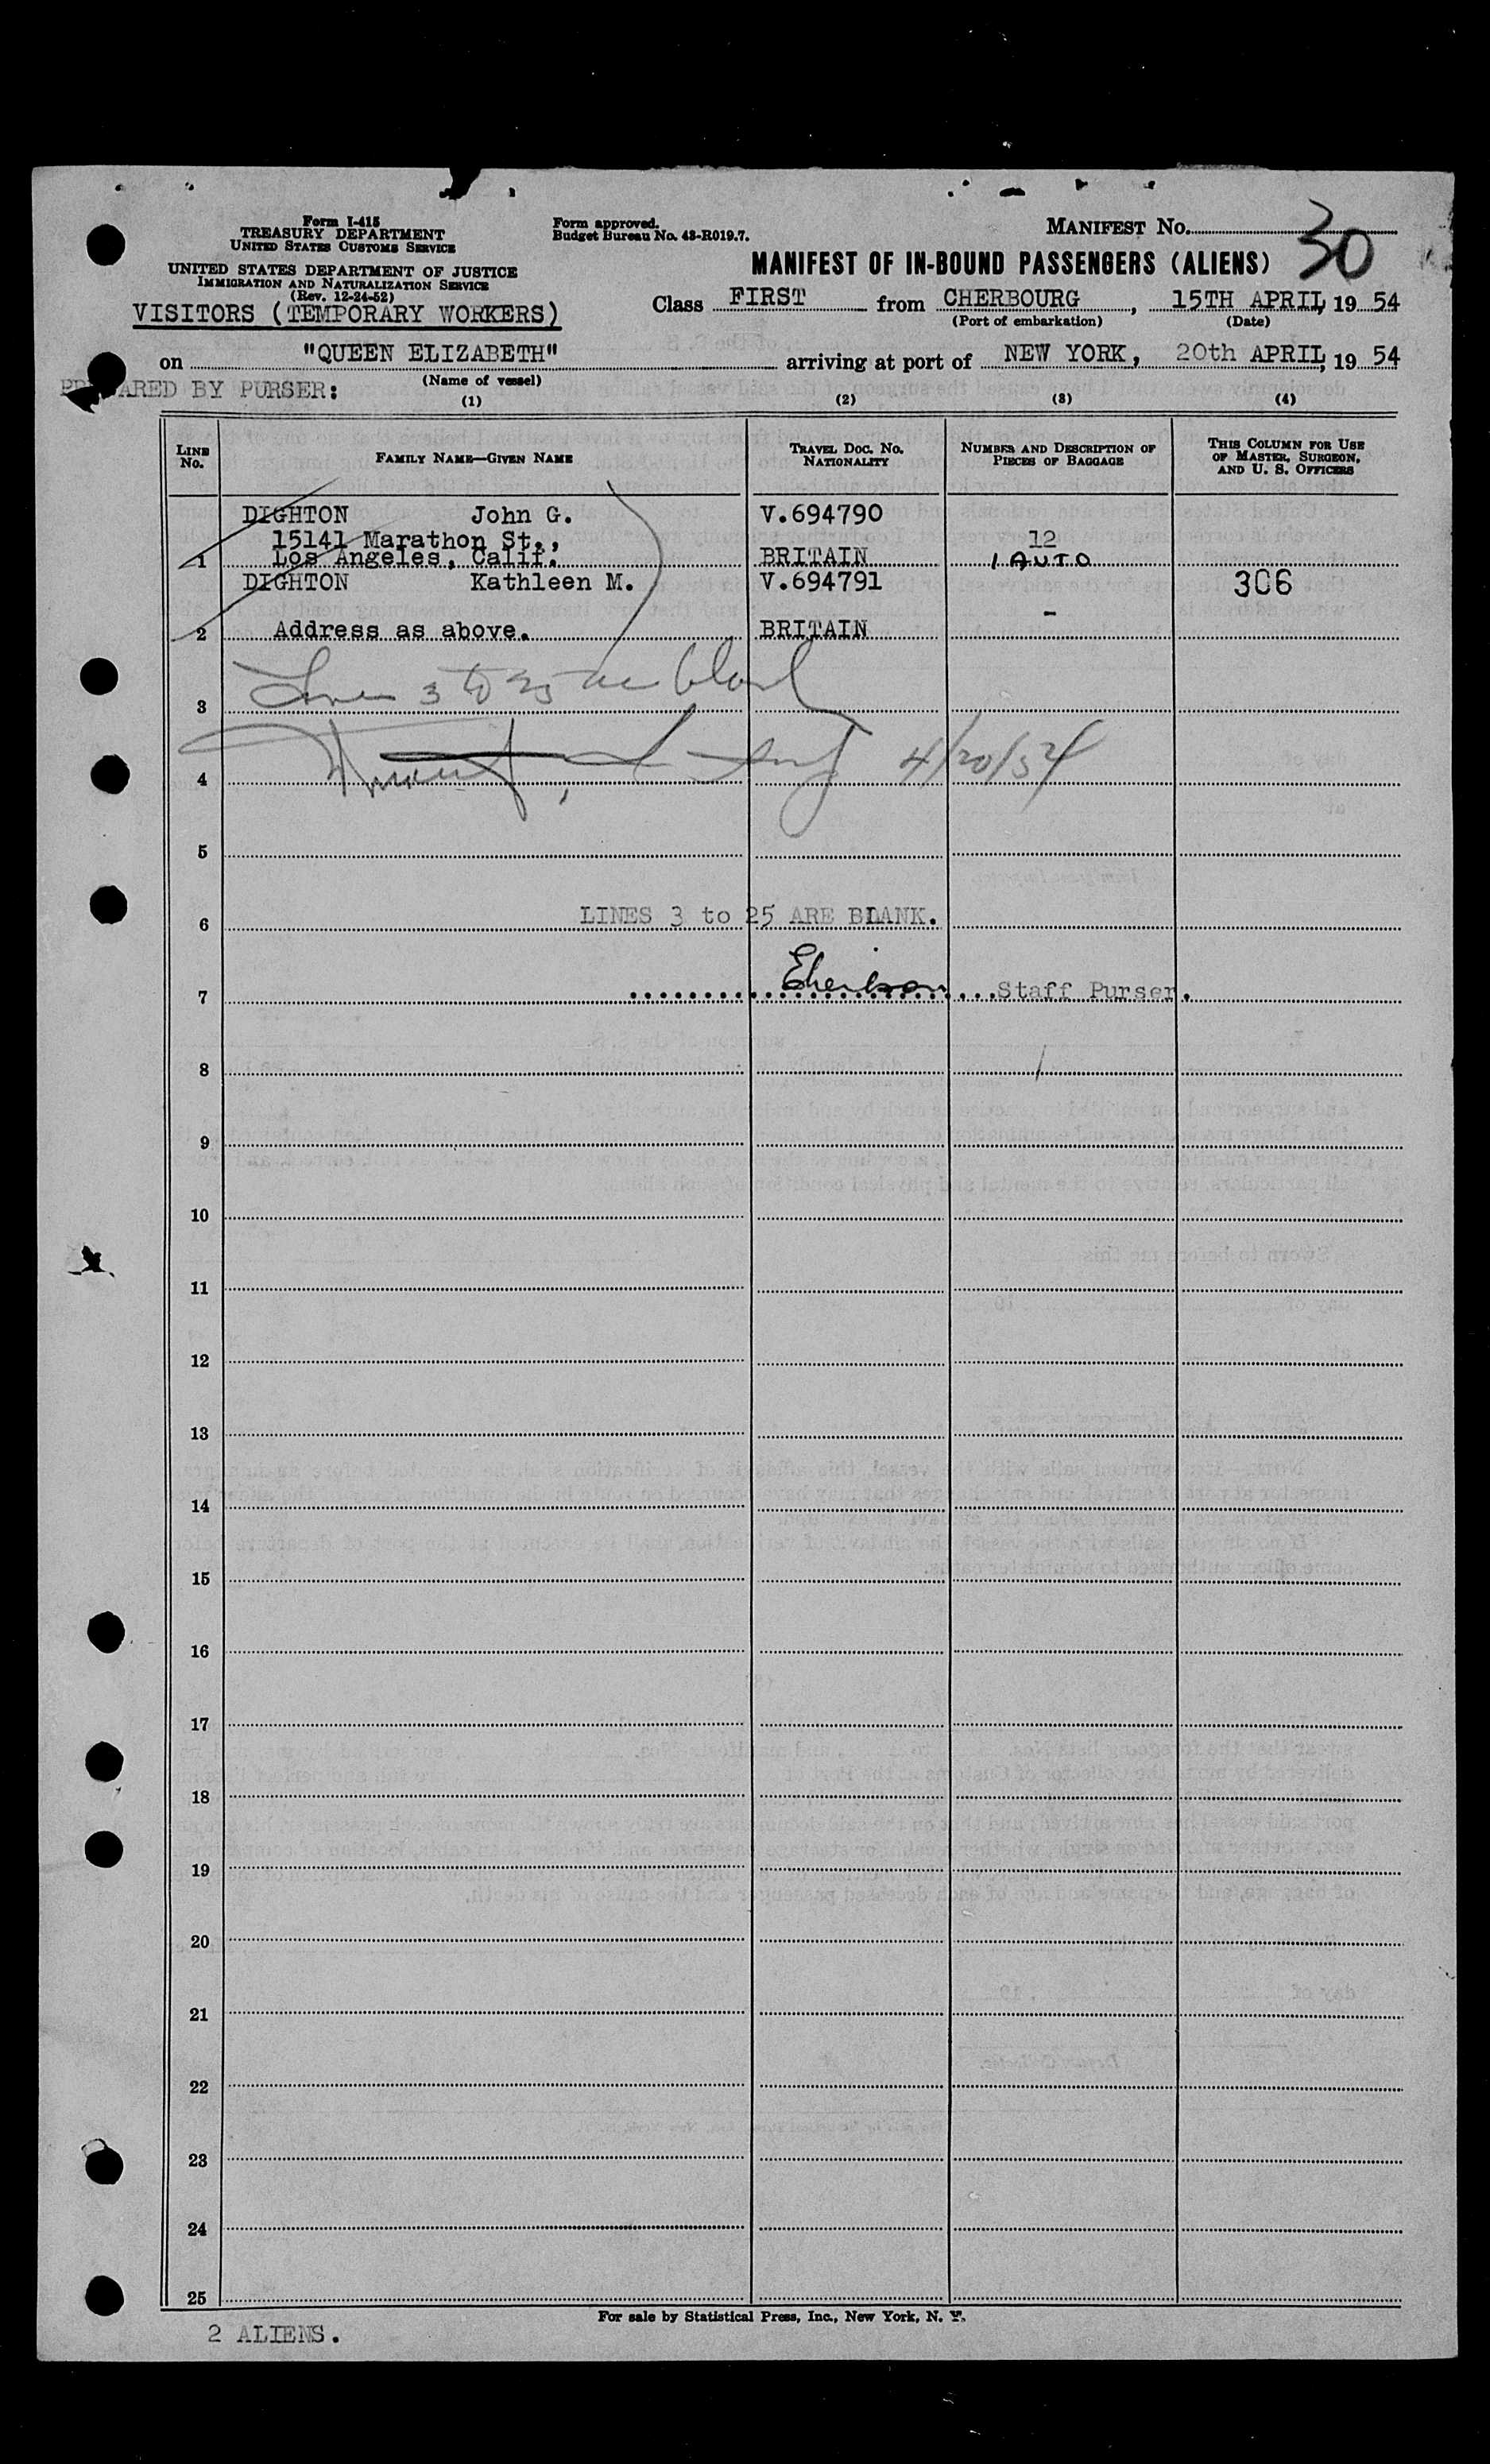 Form I-415
TREASURY DEPARTMENT
UNITED STATES CUSTOMS SERVICE
UNITED STATES DEPARTMENT OF JUSTICE
IMMIGRATION AND NATURALIZATION SERVICE
(Rev. 12-24-52)
VISITORS (TEMPORARY WORKERS)
Form approved.
Budget Bureau No. 43-R019.7.
MANIFEST No. 30
MANIFEST OF IN-BOUND PASSENGERS (ALIENS)
Class FIRST from CHERBOURG, 15TH APRIL, 19 54
(Port of embarkation) (Date)
on "QUEEN ELIZABETH" arriving at port of NEW YORK, 20th APRIL, 19 54
(Name of vessel)
PREPARED BY PURSER:
(1) (2) (3) (4)
LINE No. FAMILY NAME—GIVEN NAME TRAVEL DOC. NO. NATIONALITY NUMBER AND DESCRIPTION OF PIECES OF BAGGAGE THIS COLUMN FOR USE OF MASTER, SURGEON, AND U. S. OFFICERS
DIGHTON John G. V.694790
15141 Marathon St., 12
1 Los Angeles, Calif. BRITAIN 1 AUTO
DIGHTON Kathleen M. V.694791 306
2 Address as above. BRITAIN -
3 Lines 3 to 25 are blank
4 4/20/54
5
6 LINES 3 to 25 ARE BLANK.
7 Staff Purser.
8
9
10
11
12
13
14
15
16
17
18
19
20
21
22
23
24
25
For sale by Statistical Press, Inc., New York, N. Y.
2 ALIENS.